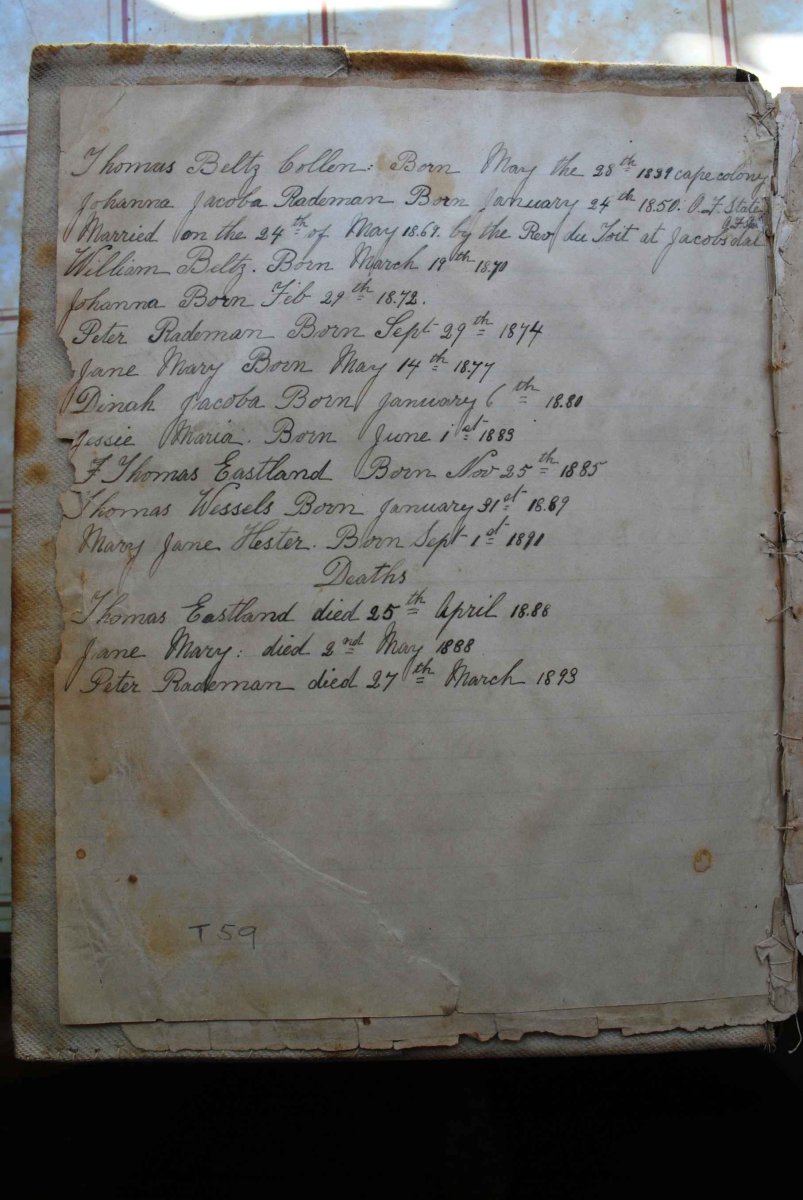 Thomas Beltz Collen: Born May the 28th 1839 cape colony
Johanna Jacoba Rademan Born January 24th 1850. O.F. State
Married on the 24th of May 1869. by the Rev du Toit at Jacobsdal
William Beltz. Born March 19th 1870
Johanna Born Feb 29th 1872.
Peter Rademan Born Sept 29th 1874
Jane Mary Born May 14th 1877
Dinah Jacoba Born January 6th 1880
Jessie Maria. Born June 1st 1883
F Thomas Eastland Born Nov 25th 1885
Thomas Wessels Born January 31st 1889
Mary Jane Hester. Born Sept 1st 1891
Deaths
Thomas Eastland died 25th April 1888
Jane Mary: died 2nd May 1888
Peter Rademan died 27th March 1893
T 59